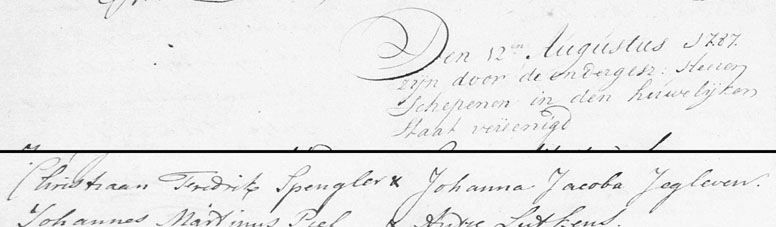 Den 12en Augustus 1787.
zijn door de ondergesz: Heeren
Schepenen in den huwelijken
Staat vereenigd
Christiaan Fredrik Spengler x Johanna Jacoba Jegleven.
Johannes Martinus Piel x Antje Lutkens.